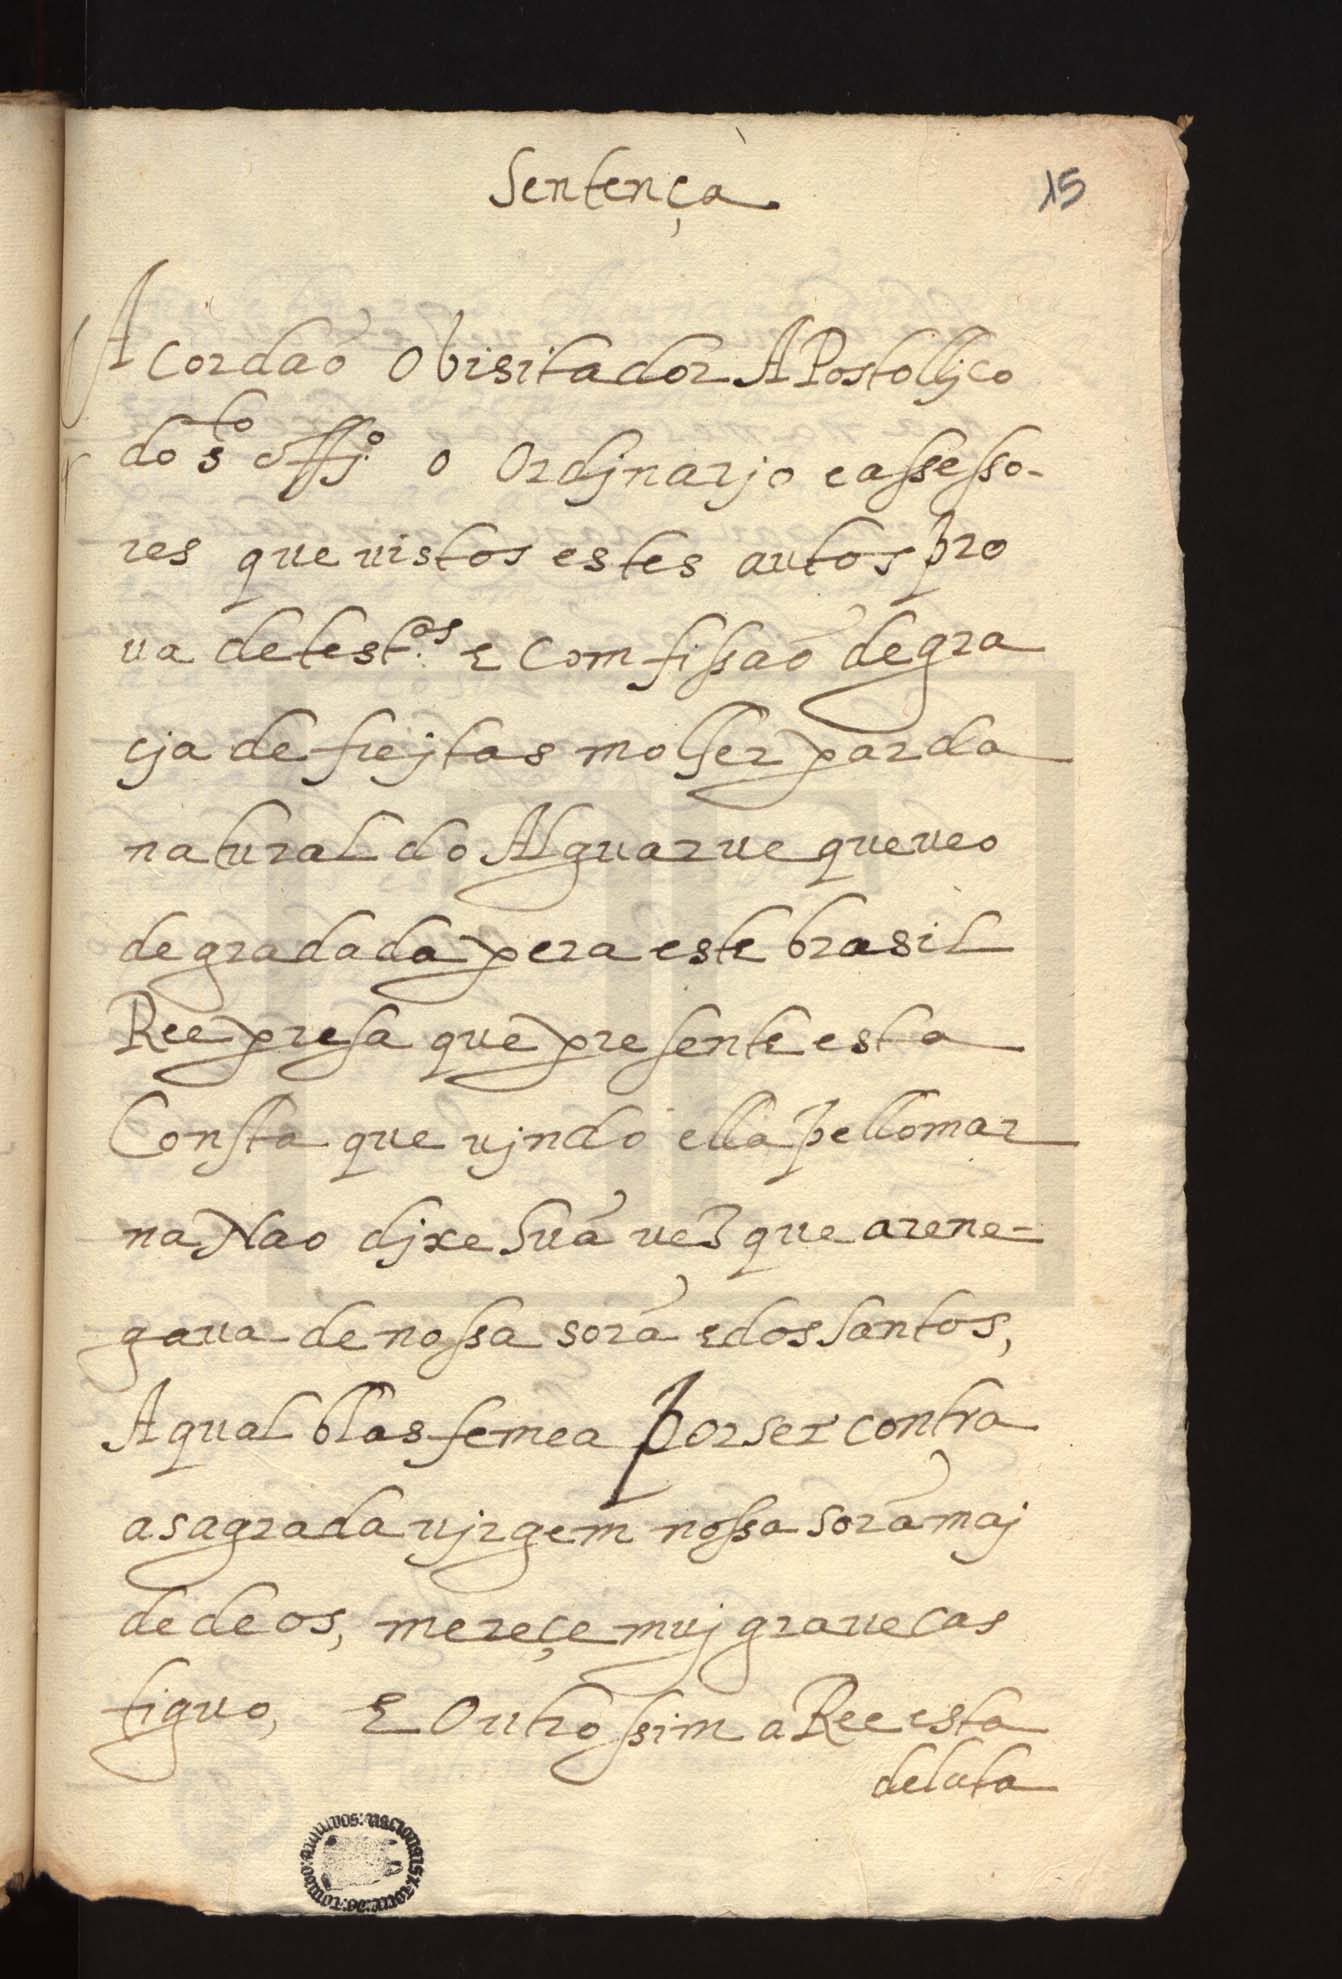 Sentença.
15
Acordão o bisitador APostollico
do s.to offj.o o Ordjnarjo e assesso-
res que uistos estes autos pro
ua de test.as e comfissão de gra
cja de frejtas molher parda
natural do Alguarue que ueo
degradada pera este brasil
Ree presa que presente esta
Consta que ujndo ella pello mar
na Nao djxe huã uez que arene-
gaua de nossa sorã e dos santos,
A qual blasfemea por ser contra
a sagrada ujrgem nossa sorã maj
de deos, mereçe muj graue cas
tiguo, E Outrossim a Ree esta
deluta
ARQUIVOS NACIONAIS TORRE DO TOMBO